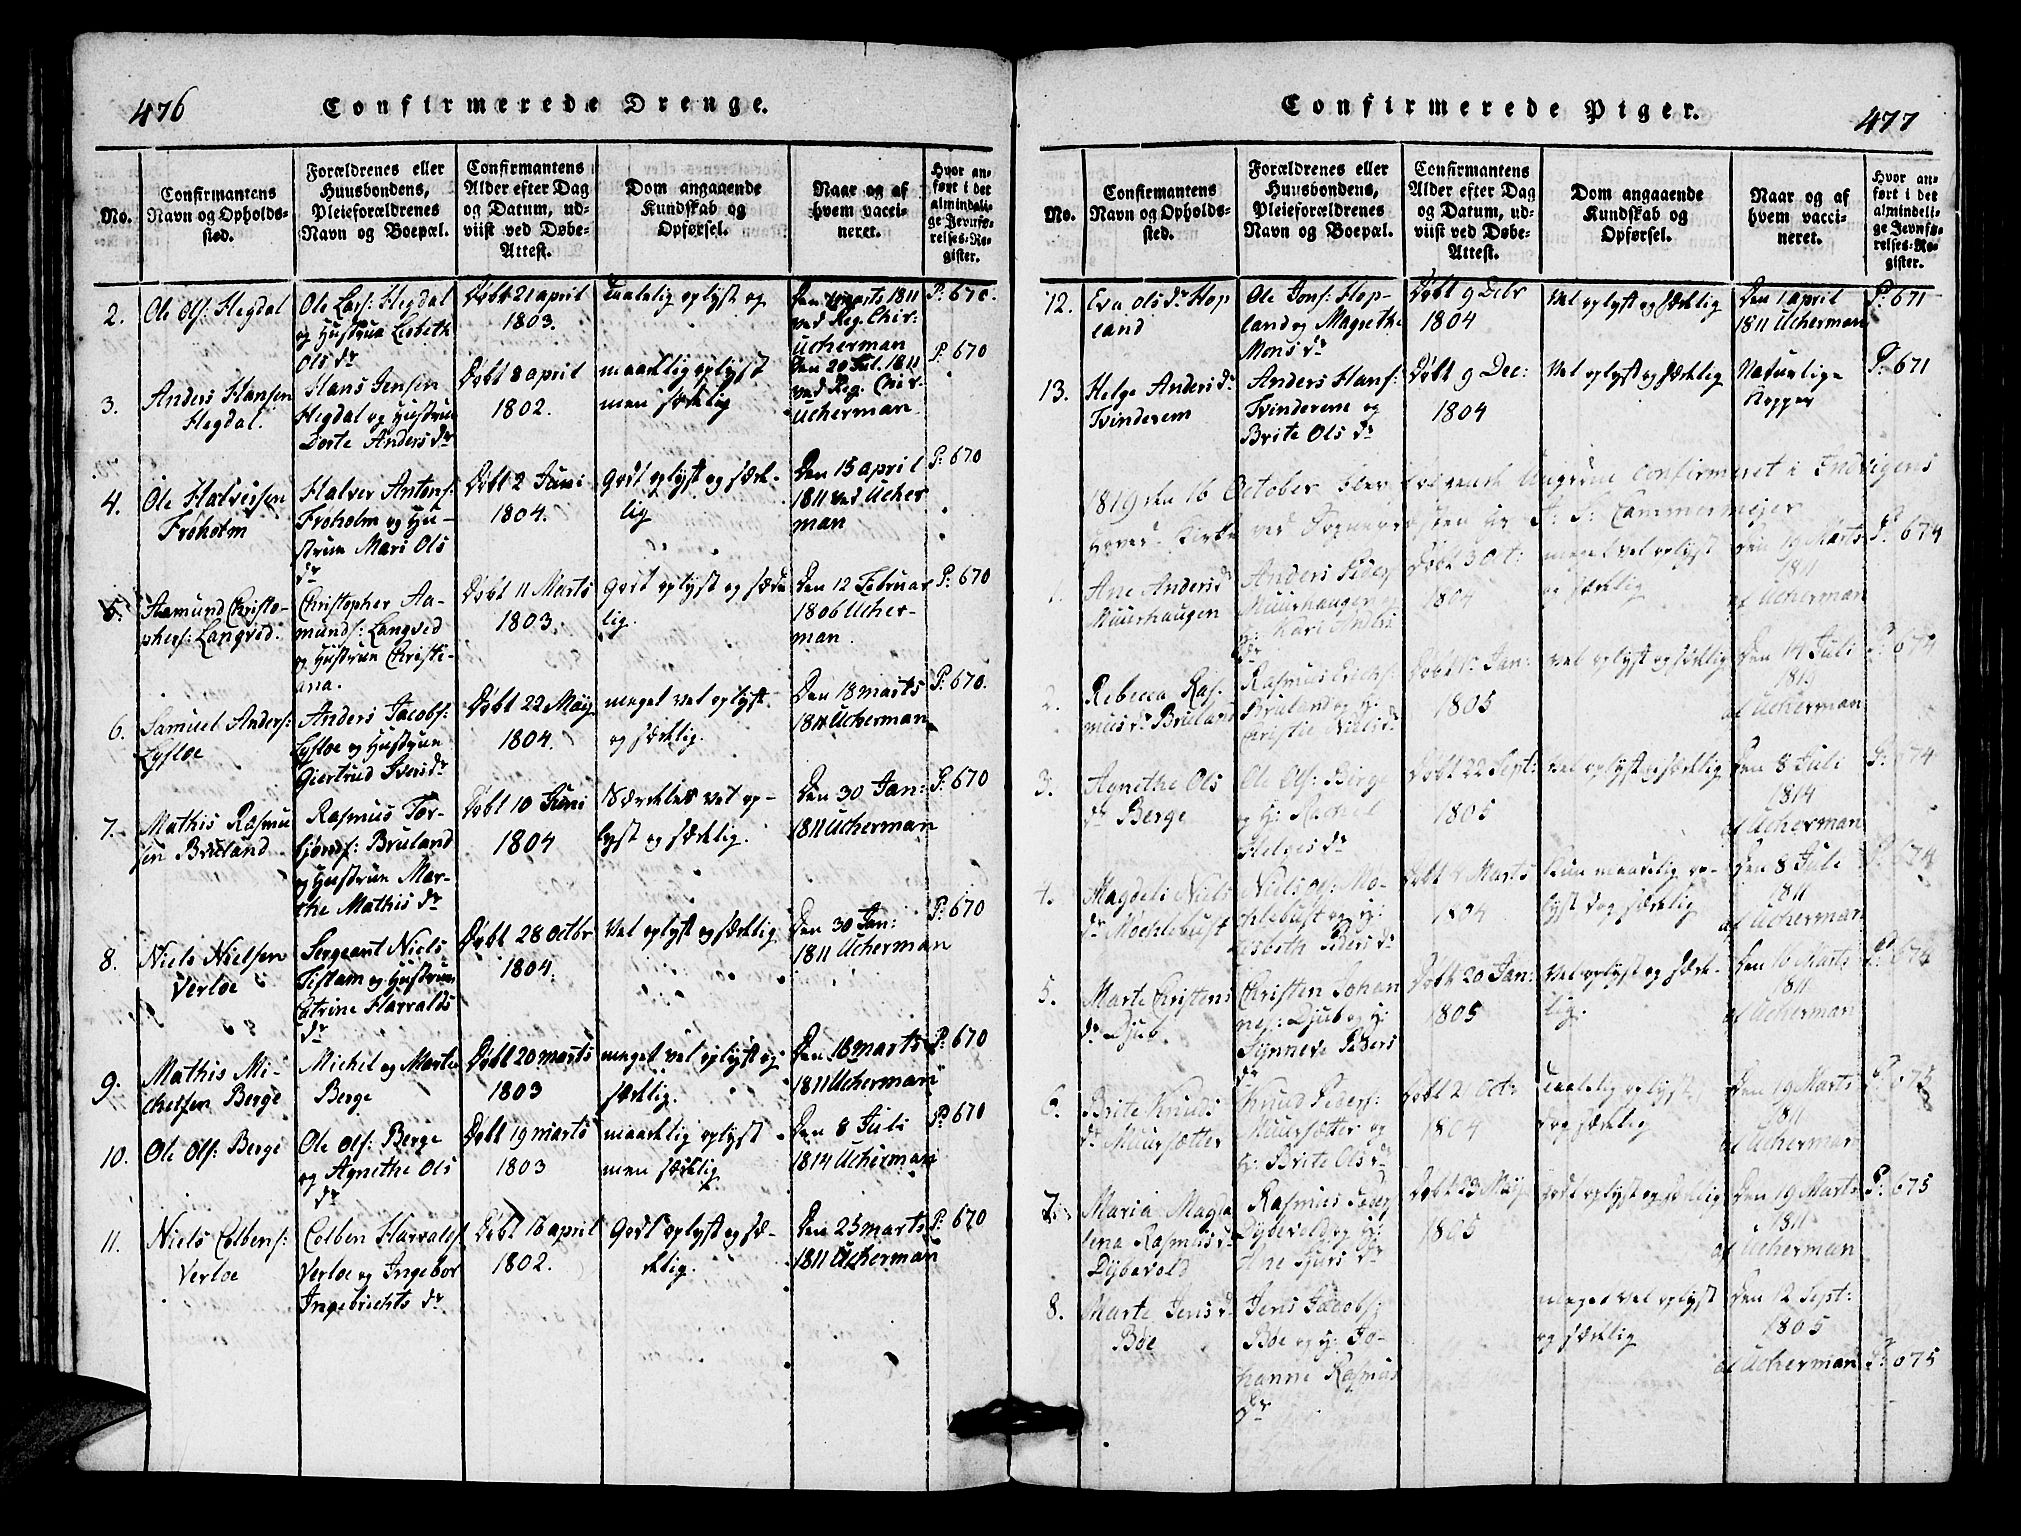 476
Confirmerede Drenge.
No.
Confirmantens
Navn og Opholds-
sted.
Forældrenes eller
Huusbondens,
Pleieforældrenes
Navn og Boepæl.
Confirmantens
Alder efter Dag
og Datum, ud-
viist ved Døbe-
Attest.
Dom angaaende
Kundskab og
Opførsel.
Naar og af
hvem vacci-
neret.
Hvor an-
ført i det
almindeli-
ge Jevnfø-
relses-Re-
gister.
2.
Ole Ols: Hegdal
Ole Lars: Hegdal
og Hustrue Lisbeth
Ols dr
Døbt 21 april
1803.
Taalelig oplyst og
Den marts 1811
ved Reg. Chir:
Ucherman
P: 670.
3.
Anders Hansen
Hegdal.
Hans Jensen
Hegdal og Hustrue
Dorte Anders dr
Døbt 8 april
1802.
maadelig oplyst
men sædelig
Den 20 Jul. 1811
ved Reg. Chir:
Ucherman.
P: 670
4.
Ole Halversen
Froholm
Halver Antons:
Froholm og Hu-
strue Mari Ols
dr
Døbt 2 Juni
1804.
Godt oplyst og sæde-
lig
Den 15 april
1811 ved Ucher
man
P: 670
5.
Aamund Christo-
phers: Langved.
Christopher Aa-
munds: Langved
og Hustrue Christi-
ana.
Døbt 11 Marts
1803.
Godt oplyst og sæde
lig.
Den 12 Februar
1806 Ucher-
man.
P: 670
6.
Samuel Anders:
Lysloe
Anders Jacobs:
Lysloe og Hustrue
Giertrud Ivers dr
Døbt 22 May
1804.
meget vel oplyst
og sædelig.
Den 18 marts
1811 Ucherman
P: 670.
7.
Mathis Rasmu
sen Bruland
Rasmus Tor-
biørns: Bruland
og Hustrue Mar-
the Mathis dr
Døbt 10 Juni
1804
Særdeles vel op-
lyst og sædelig.
Den 30 Jan:
1811 Ucherman
P: 670
8.
Niels Nielsen
Verloe
Sergeant Niels
Tislam og Hustrue
Catrine Harralds
dr
Døbt 28 octbr
1804.
Vel oplyst og sædelig
Den 30 Jan:
1811 Ucherman
P: 670
9.
Mathis Mi-
chelsen Berge
Michel og Marte
Berge
Døbt 20 marts
1803
meget vel oplyst og
sædelig.
Den 18 marts
1811 Ucherman
P: 670
10.
Ole Ols: Berge
Ole Ols: Berge
og Agnethe Ols
dr
Døbt 19 marts
1803
maadelig oplyst
men sædelig
Den 8 Juli
1814 Ucherman
P: 670
11.
Niels Colbens:
Verloe
Colben Harralds
Verloe og Ingebor
Ingebrichts dr
Døbt 16 april
1802.
Godt oplyst og sæ-
delig.
Den 25 marts
1811 Ucherman
P: 670
Confirmerede Piger.
477
No.
Confirmantens
Navn og Opholds-
sted.
Forældrenes eller
Huusbondens,
Pleieforældrenes
Navn og Boepæl.
Confirmantens
Alder efter Dag
og Datum, ud-
viist ved Døbe-
Attest.
Dom angaaende
Kundskab og
Opførsel.
Naar og af
hvem vacci-
neret.
Hvor an-
ført i det
almindeli-
ge Jevnfø-
relses-Re-
gister.
12.
Eva Ols dr Hop
land
Ole Jons: Hop-
land og Magrethe
Mons dr
Døbt 9 Debr
1804
Vel oplyst og sædelig
Den 1 april
1811 Ucherman
P: 671
13.
Helge Anders dr
Tvinderem
Anders Hans:
Tvinderem og
Brite Ols dr
Døbt 9 Dec:
1804
Vel oplyst og sædelig
Naturlige
Kopper
P: 671
1819 den 16 October blev følgende Ungdom confirmeret i Indvigens
hoved-Kirke ved Sognepræsten Hr Cammermejer
1.
Ane Anders dr
Muurhaugen
Anders Peder:
Muurhaugen og
H: Kari Anders
dr
Døbt 3 Oct:
1804
meget vel oplyst
og sædelig
Den 19 Marts
1811
af Ucherman
P: 674
2.
Rebecca Ras-
mus dr Bruland
Rasmus Erichs:
Bruland og H:
Christie Niels dr
Døbt Jan:
1805
Vel oplyst og sædelig
Den 14 Juli
af Ucherman
P: 674
3.
Agnethe Ols
dr Berge
Ole Ols: Berge
og H: Rachel
Helges dr
Døbt 22 Sept:
1805
Vel oplyst og sædelig
Den 8 Juli
1814
af Ucherman
P: 674
4.
Magdeli Niels
dr Mochlebust
Niels Mo-
chlebust og H:
Lisbeth Peders dr
Døbt Marts
1804
Kun maadelig op-
lyst dog sædelig
Den 8 Juli
1811
af Ucherman
P: 674
5.
Marte Christens
dr Djub.
Christen Johan
nes: Djub og H:
Synneve Peders
dr
Døbt 20 Jan:
1805
Vel oplyst og sæde-
lig.
Den 16 Marts
1811
af Ucherman
P: 674
6.
Brite Knuds
dr Muursætter
Knud Peders:
Muursætter og
H: Brite Ols dr
Døbt 2 Oct:
1804
Taalelig oplyst,
dog sædelig
Den 19 Marts
1811
af Ucherman
P: 675
7.
Maria Magda
lena Rasmus dr
Dybevold
Rasmus Peder:
Dybevold og H:
Ane Siurs dr
Døbt 23 May
1805
Godt oplyst og sædelig
Den 19 Marts
1811
af Ucherman
P: 675
8.
Marte Jens dr
Bøe
Jens Jacobs:
Bøe og H: Jo-
hanne Rasmus
dr
meget vel oplyst
og sædelig
Den 12 Sept:
1805
af Ucherman
P: 675